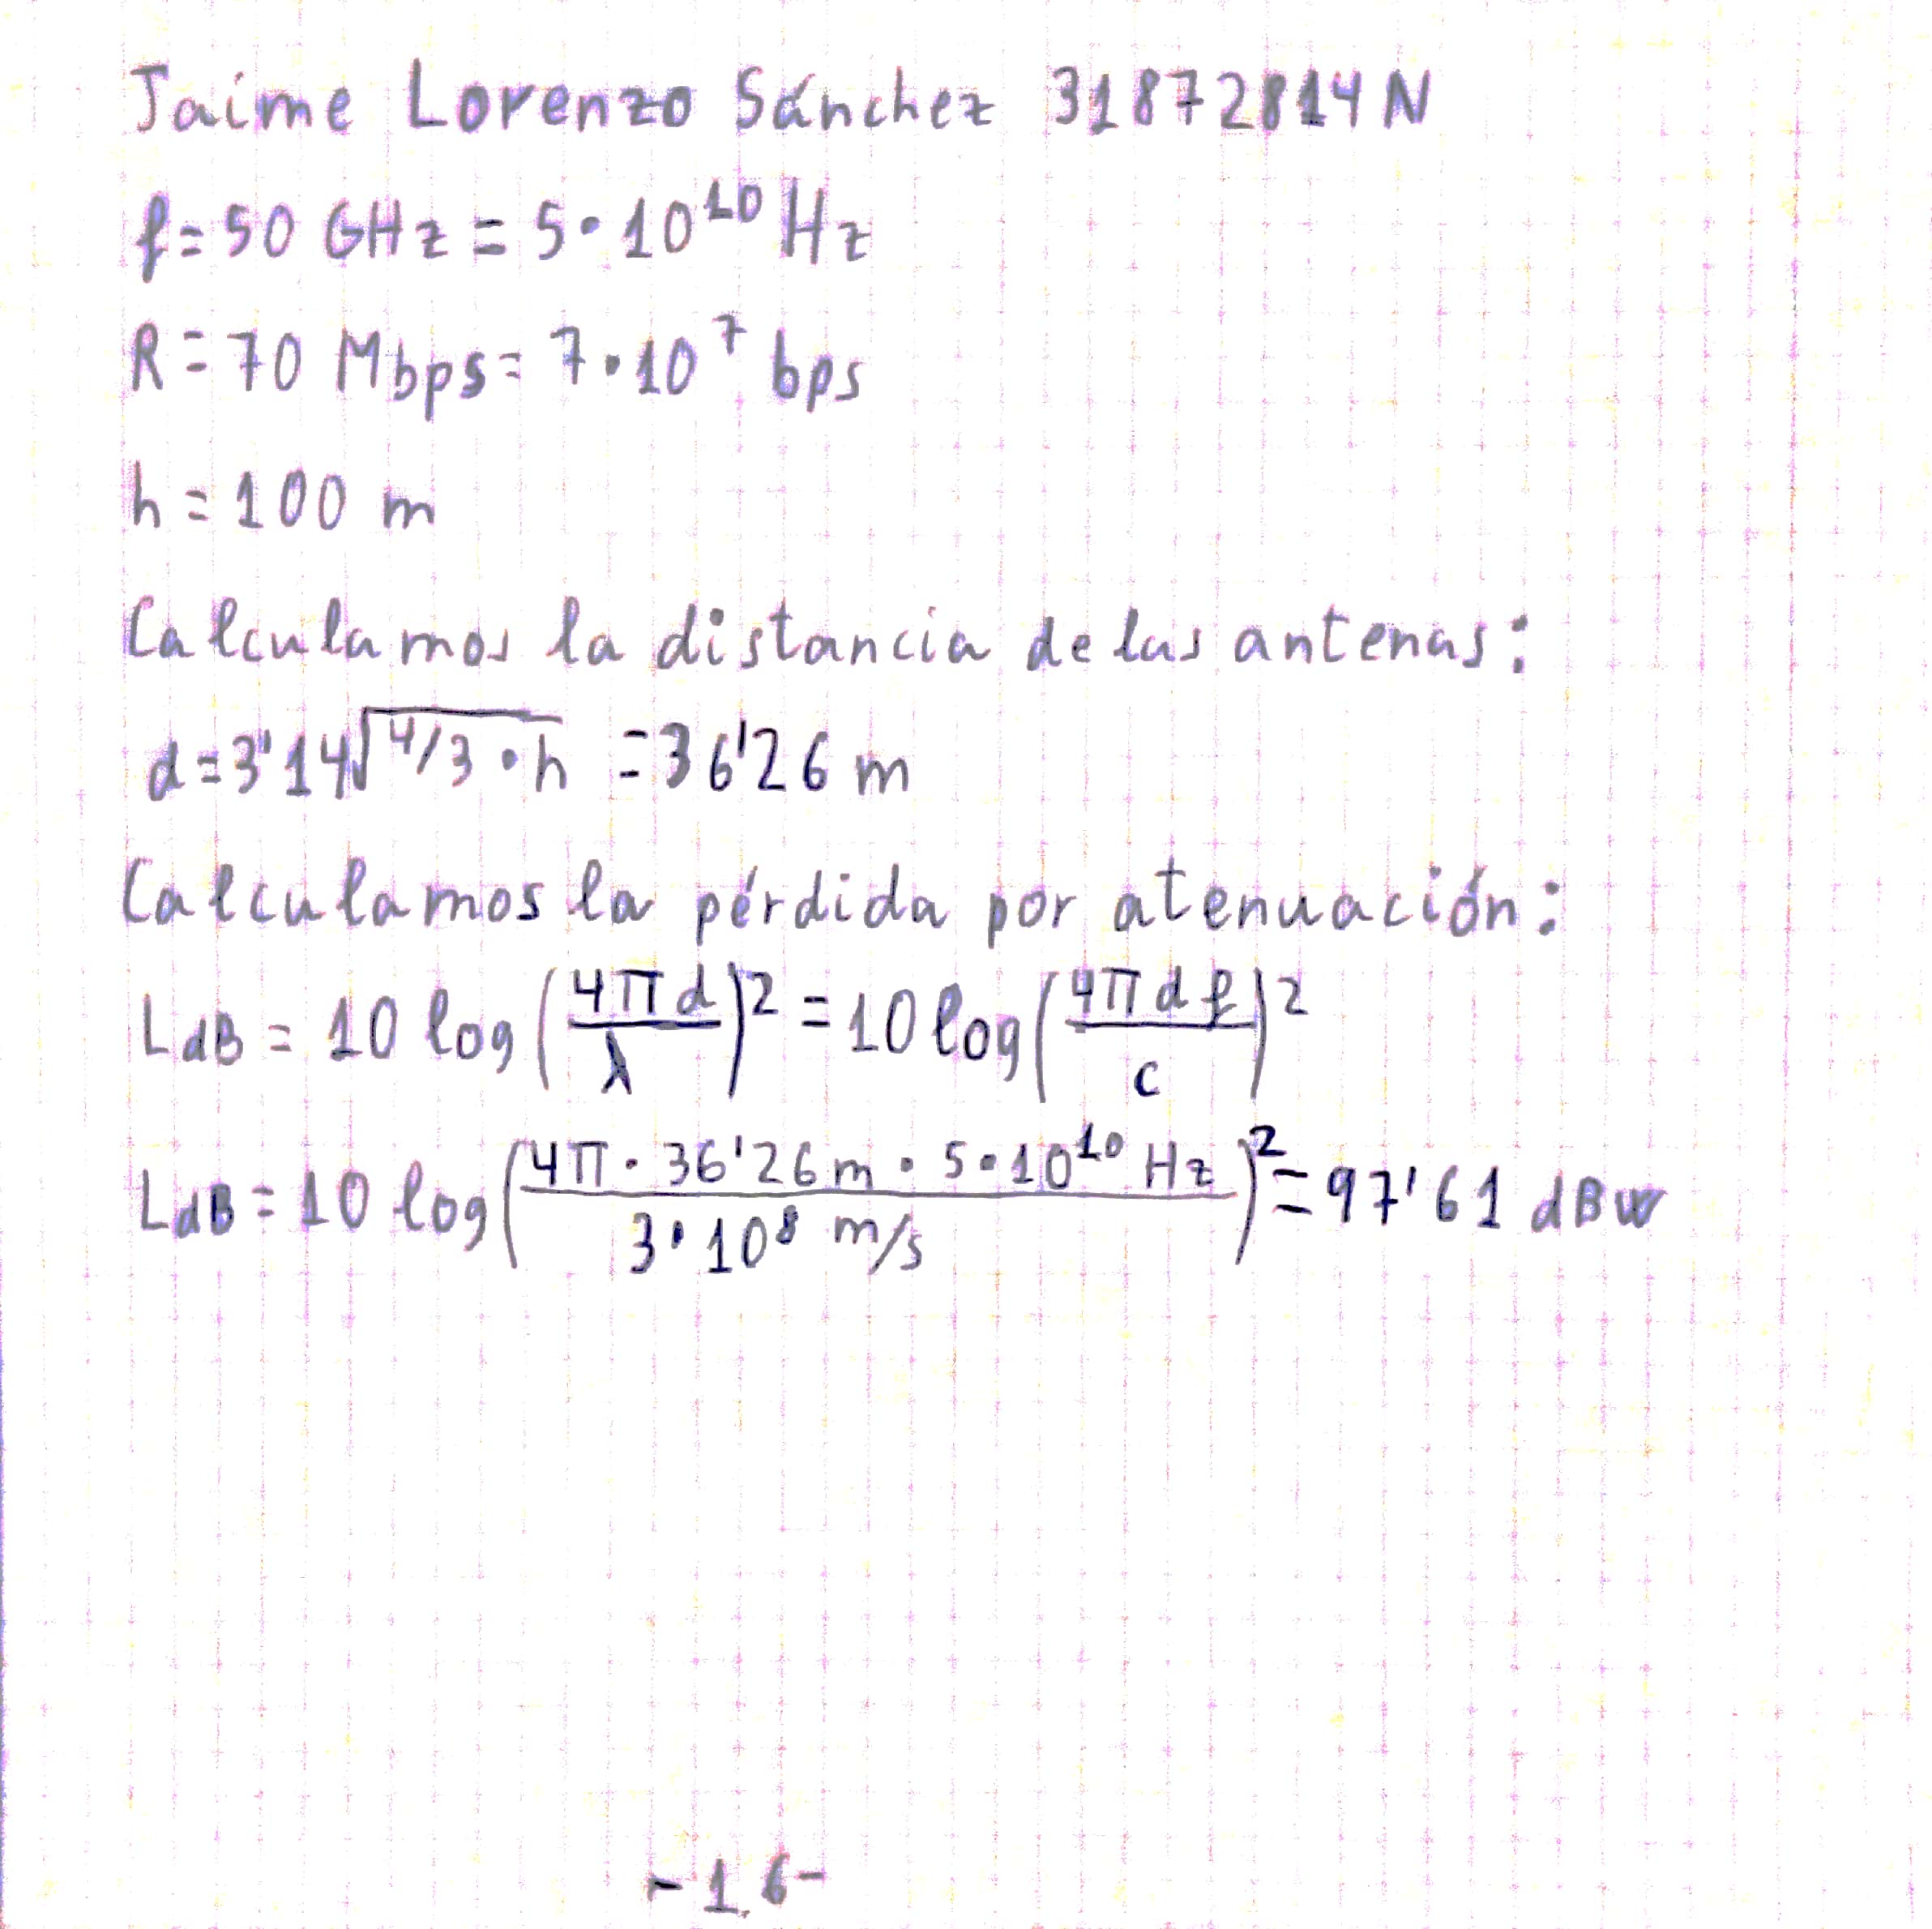 Jaime Lorenzo Sánchez 31872814N
f = 50 GHz = 5·10^10 Hz
R = 70 Mbps = 7·10^7 bps
h = 100 m
Calculamos la distancia de las antenas:
d = 3'14√(4/3·h) = 36'26 m
Calculamos la pérdida por atenuación:
LdB = 10 log(4πd/λ)^2 = 10 log(4πdf/c)^2
LdB = 10 log(4π·36'26m·5·10^10 Hz/3·10^8 m/s)^2 = 97'61 dBw
-1.6-